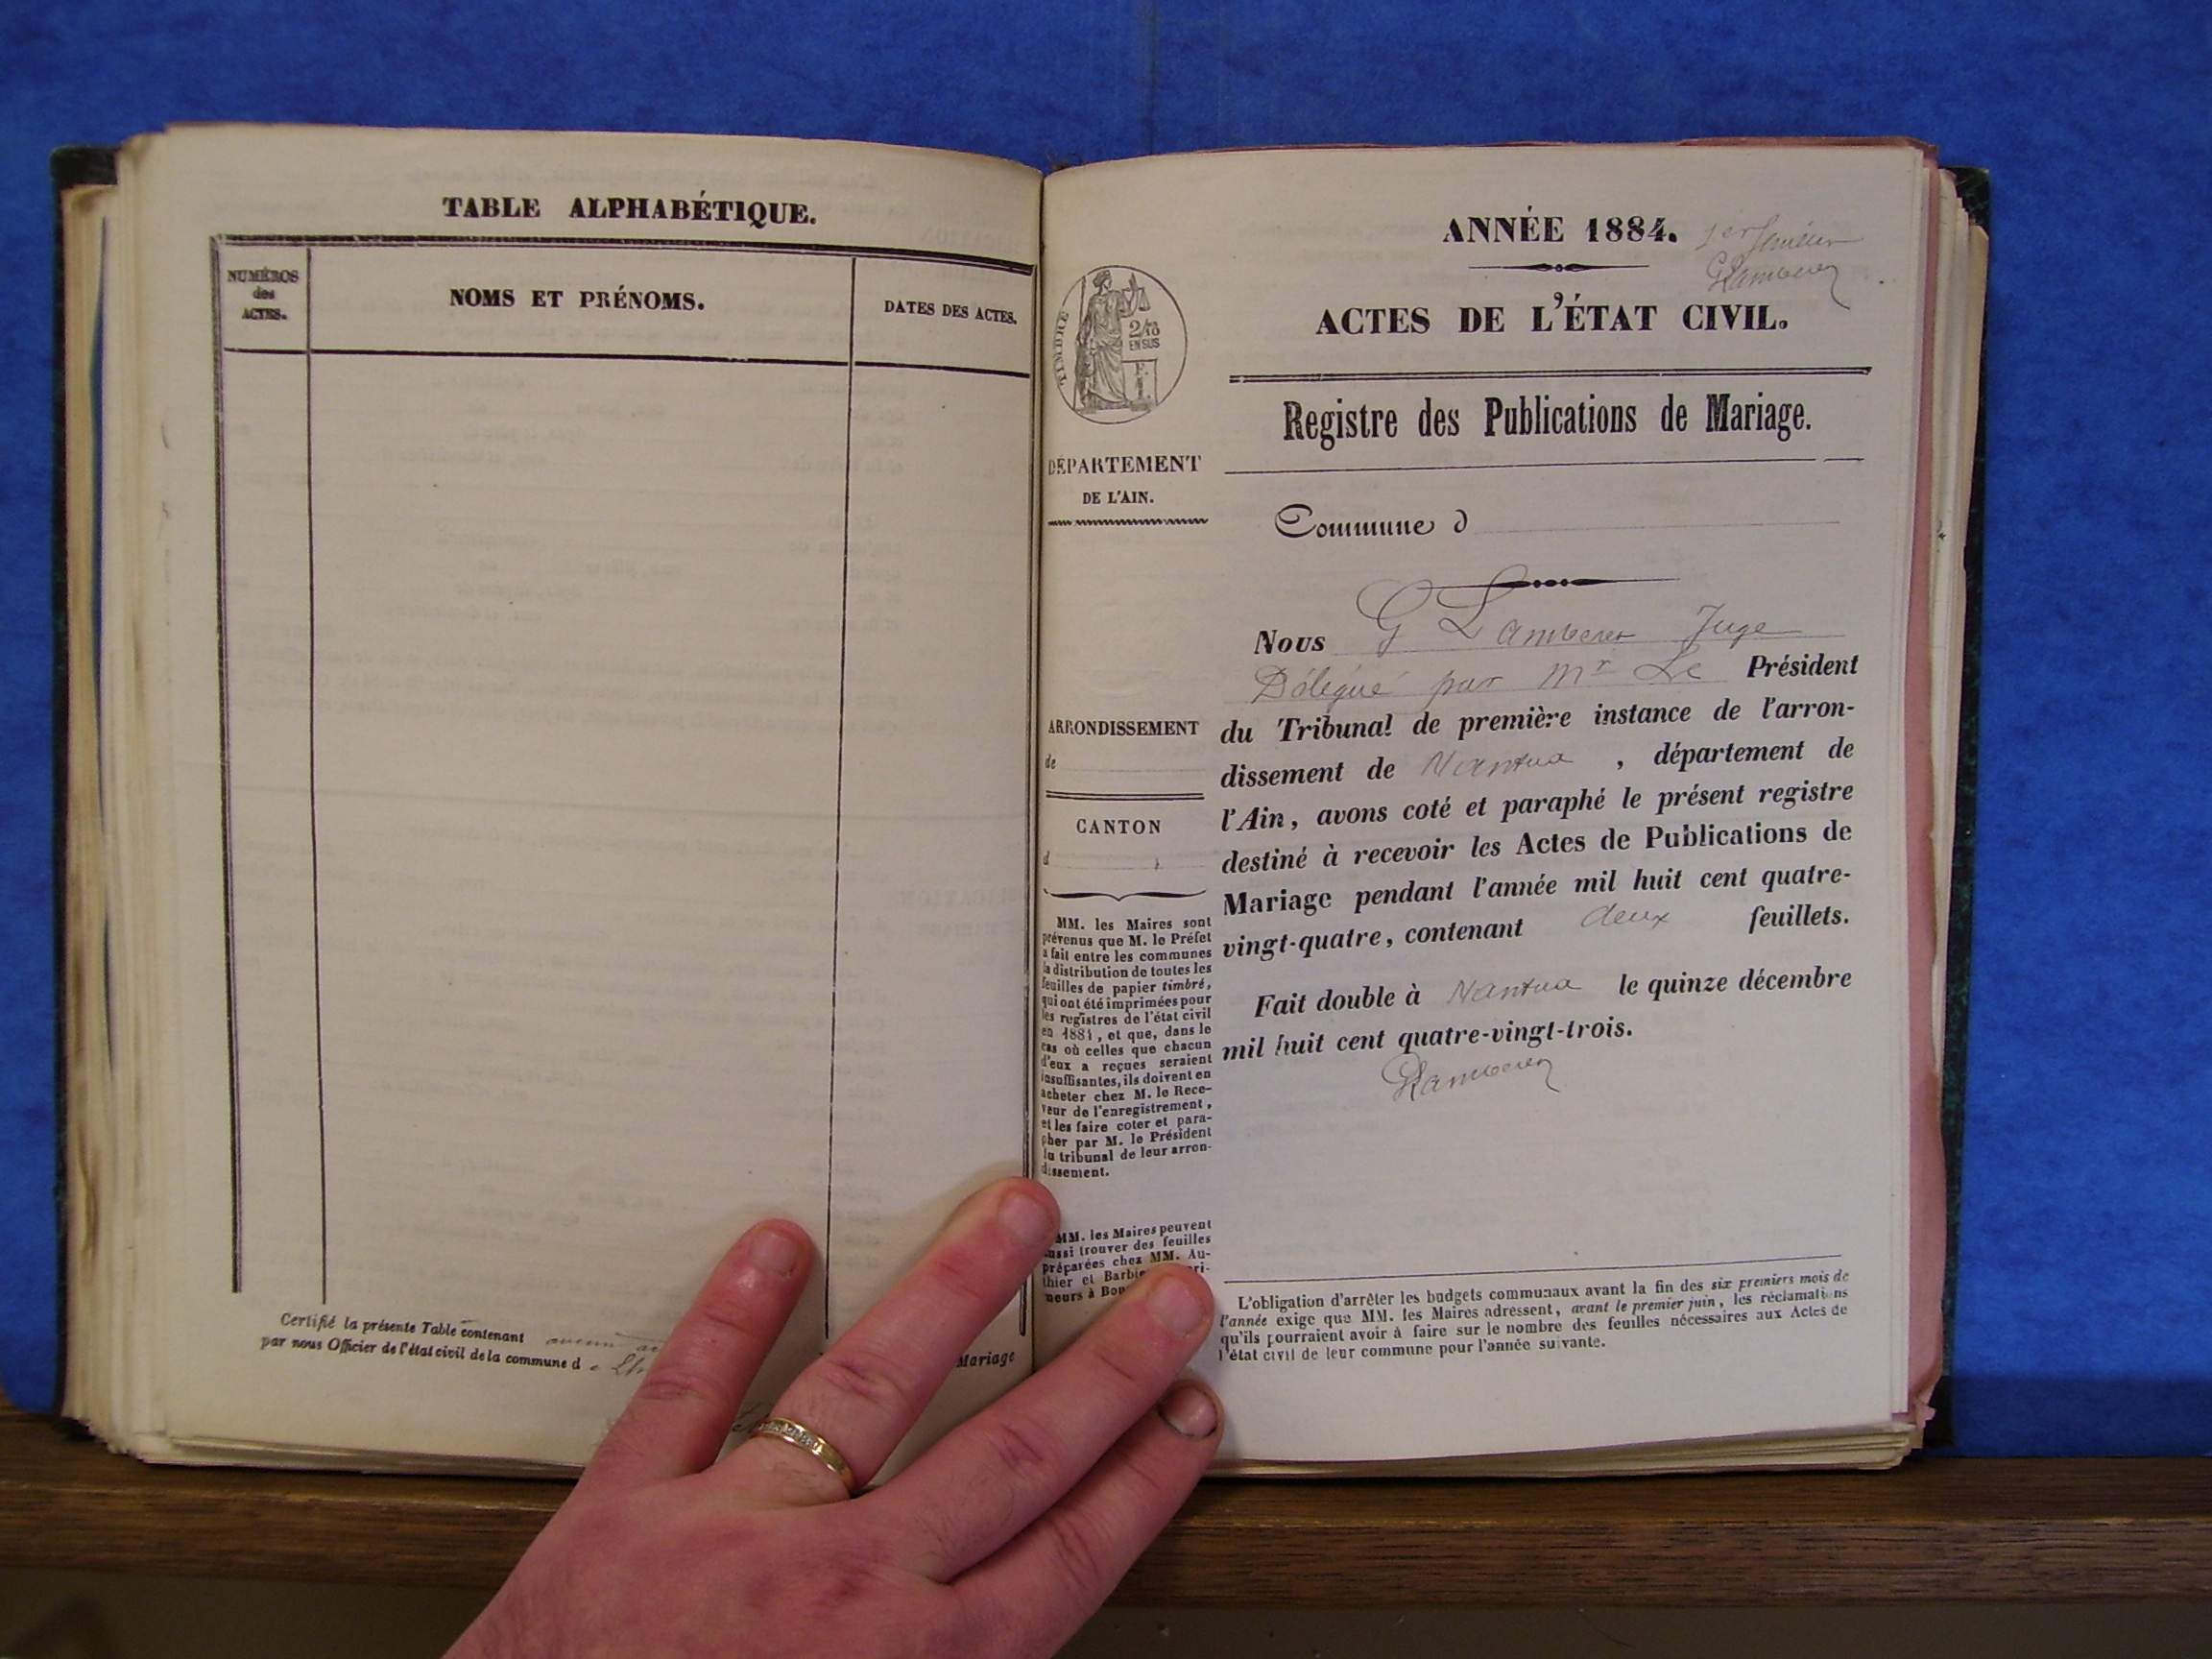 TABLE ALPHABÉTIQUE.
NUMÉROS
des
ACTES.
NOMS ET PRÉNOMS.
DATES DES ACTES.
Certifié la présente Table contenant
par nous Officier de l'état civil de la commune d
Mariage
ANNÉE 1884.
ACTES DE L'ÉTAT CIVIL.
TIMBRE
2/10
EN SUS
Registre des Publications de Mariage.
DÉPARTEMENT
DE L'AIN.
Commune d
ARRONDISSEMENT
de
CANTON
d
MM. les Maires sont
prévenus que M. le Préfet
a fait entre les communes
la distribution de toutes les
feuilles de papier timbré,
qui ont été imprimées pour
les registres de l'état civil
en 1884, et que, dans le
cas où celles que chacun
d'eux a reçues seraient
insuffisantes, ils doivent en
acheter chez M. le Rece-
veur de l'enregistrement,
et les faire coter et para-
pher par M. le Président
du tribunal de leur arron-
dissement.
MM. les Maires peuvent
aussi trouver des feuilles
préparées chez MM. Au-
thier et
à
Nous G Lamberet Juge
Délégué par Mr Le Président
du Tribunal de première instance de l'arron-
dissement de Nantua, département de
l'Ain, avons coté et paraphé le présent registre
destiné à recevoir les Actes de Publications de
Mariage pendant l'année mil huit cent quatre-
vingt-quatre, contenant deux feuillets.
Fait double à Nantua le quinze décembre
mil huit cent quatre-vingt-trois.
L'obligation d'arrêter les budgets communaux avant la fin des six premiers mois de
l'année exige que MM. les Maires adressent, avant le premier juin, les réclamations
qu'ils pourraient avoir à faire sur le nombre des feuilles nécessaires aux Actes de
l'état civil de leur commune pour l'année suivante.